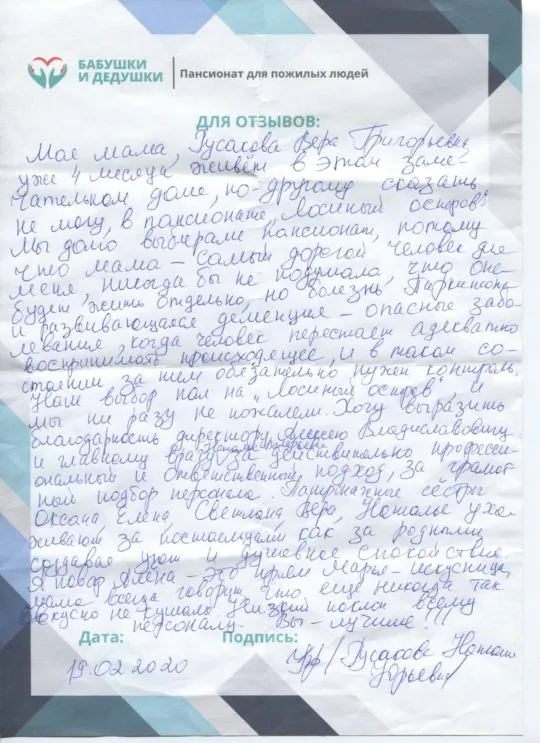 БАБУШКИ
И ДЕДУШКИ
Пансионат для пожилых людей
ДЛЯ ОТЗЫВОВ:
Моя мама, Гусакова Вера Григорьевна
уже 4 месяца живёт в этом заме-
чательном доме, по-другому сказать
не могу, в пансионате „Лосиный остров"
Мы долго выбирали пансионат, потому
что мама – самый дорогой человек для
меня, никогда бы не подумала, что она
будет жить отдельно, но болезнь Паркинсона
и развивающаяся деменция – опасные забо-
левания, когда человек перестает адекватно
воспринимать происходящее, и в таком со-
стоянии, за ним обязательно нужен контроль.
Наш выбор пал на „Лосиный остров", и
мы ни разу не пожалели. Хочу выразить
благодарность директору Алексею Владиславовичу
и главному врачу за действительно професси-
ональный и ответственный подход, за грамот
ный подбор персонала. Патронажные сёстры
Оксана, Елена, Светлана, Вера, Наталья уха-
живают за постояльцами как за родными
создавая уют и душевное спокойствие.
А повар Алёна – это прям Марья-искусница,
мама всегда говорит, что еще никогда так
вкусно не кушала. Низкий поклон всему
персоналу. Вы – лучшие!!!
Дата: Подпись:
19.02.2020 Гусакова Наталья
Юрьевна